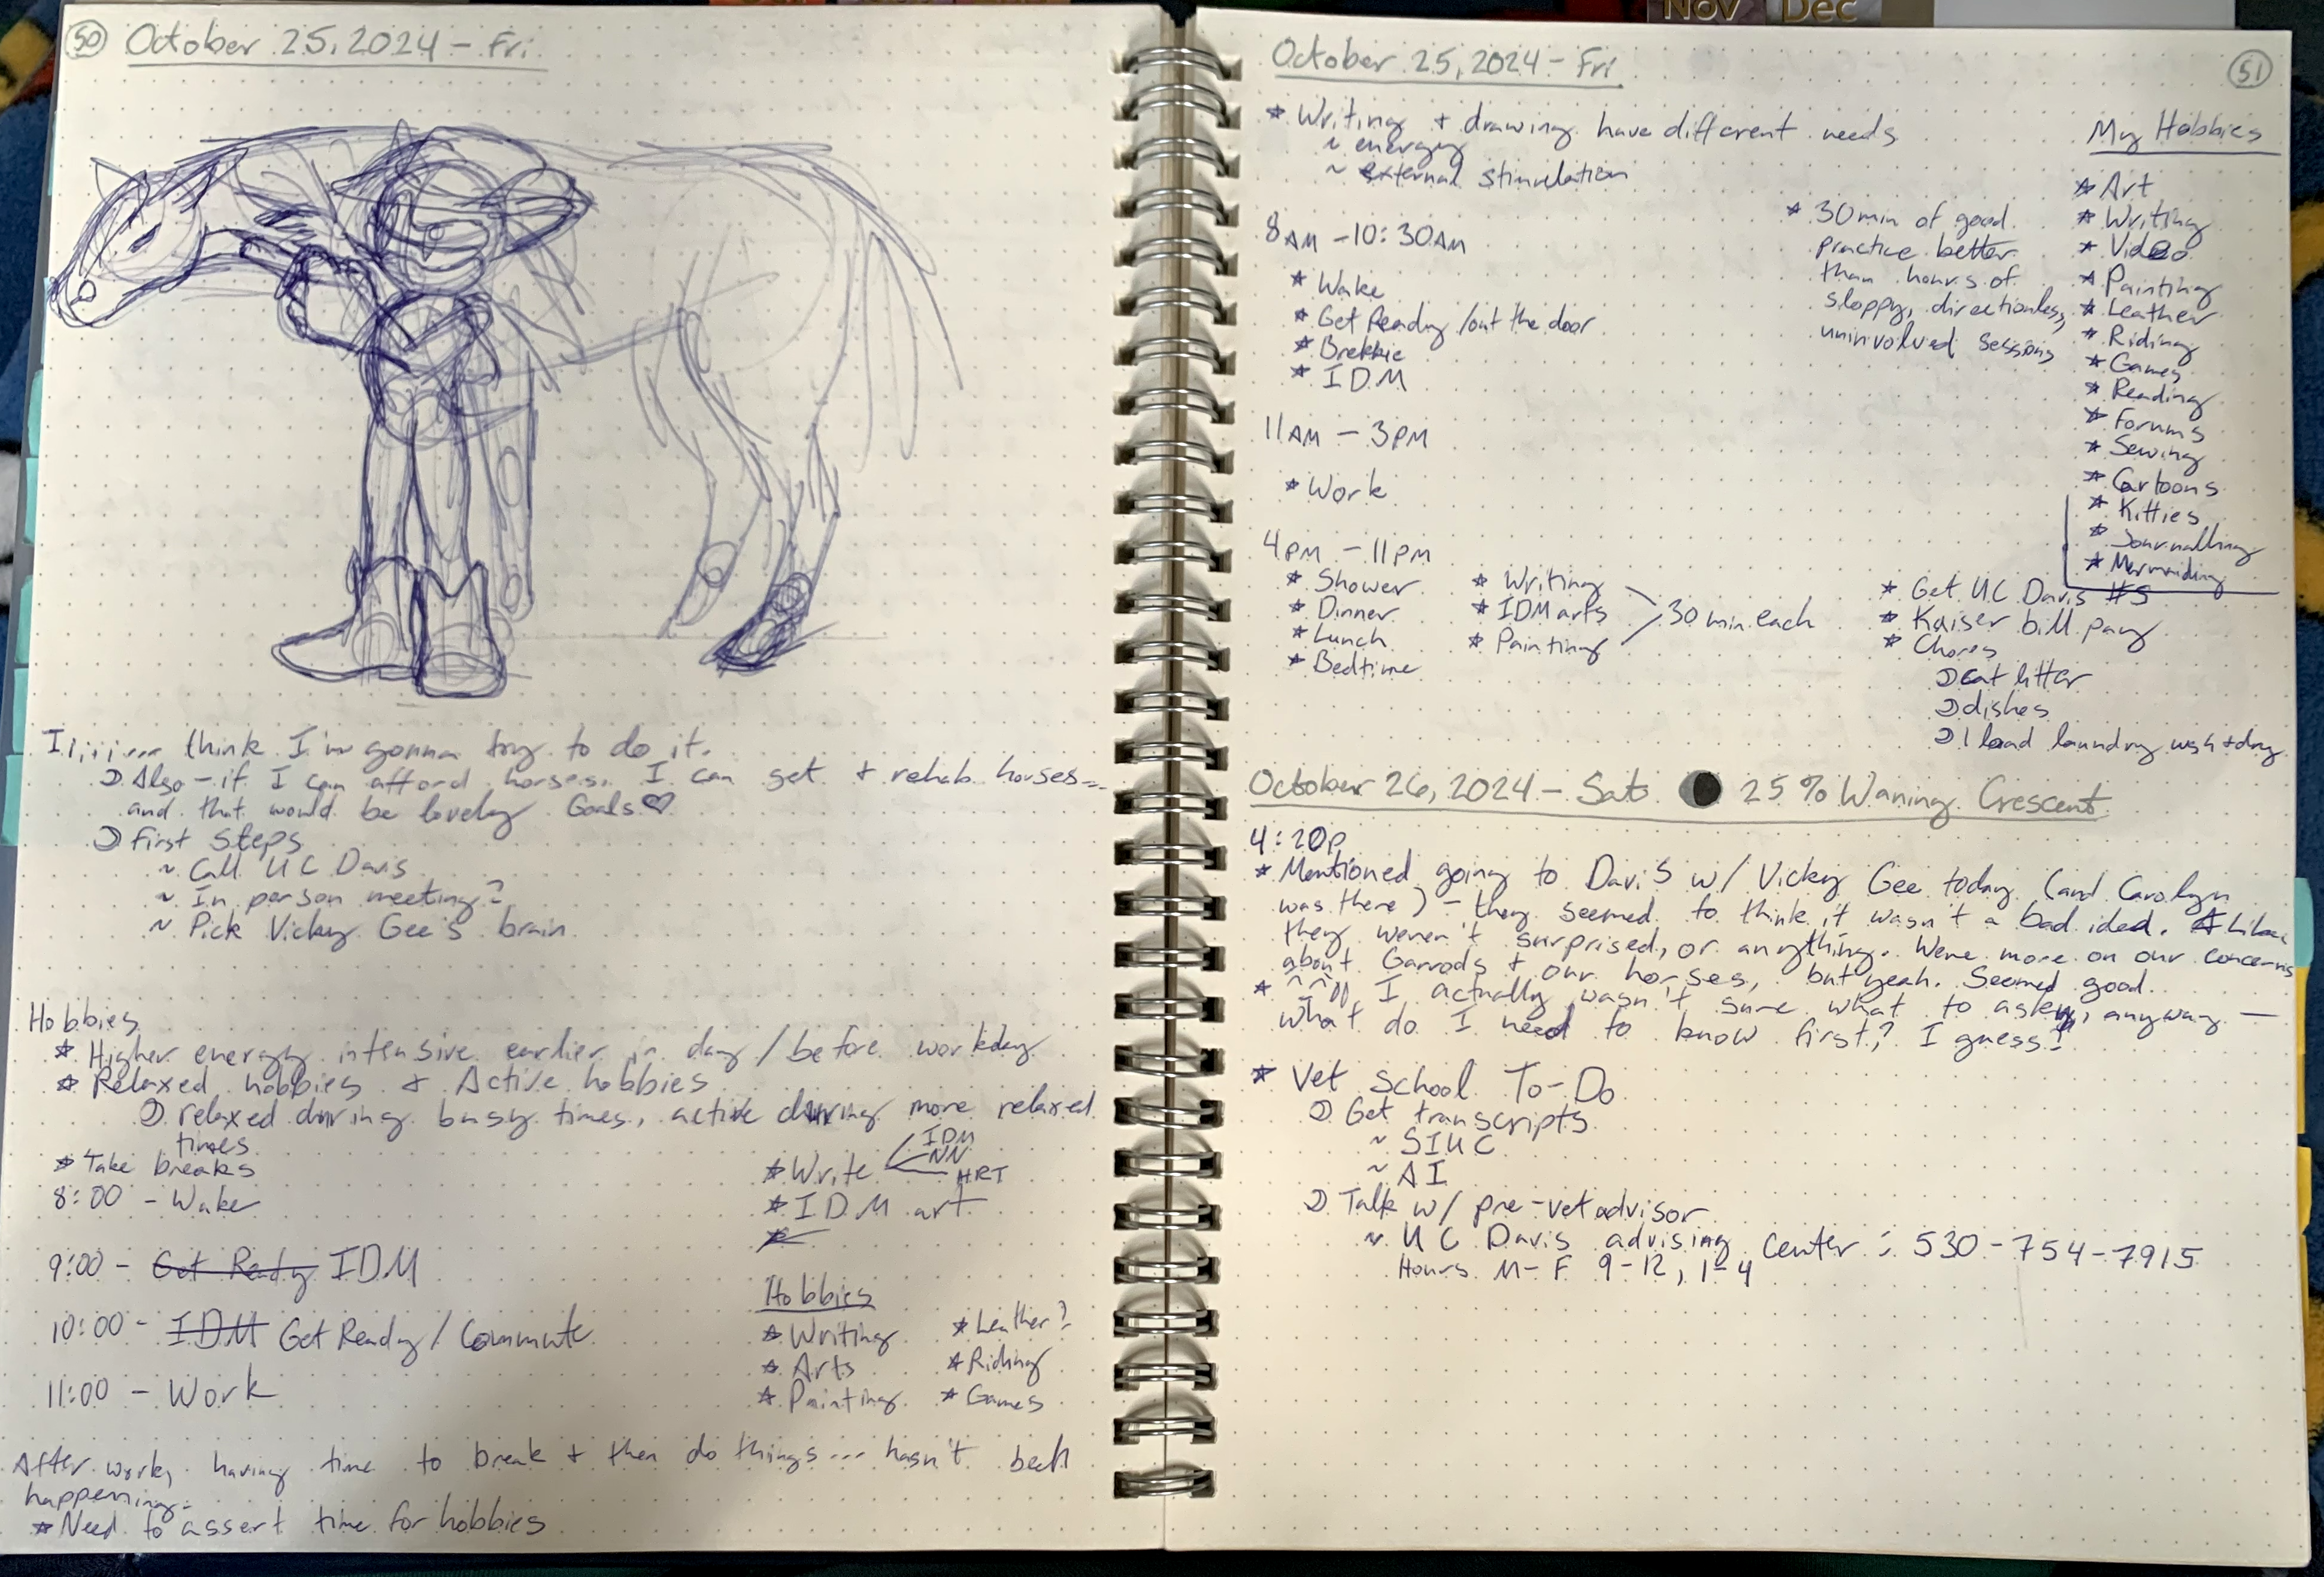 Nov Dec
50 October 25, 2024 - Fri
Iiiiii... think I'm gonna try to do it.
Also - if I can afford horses, I can get + rehab horses...
and that would be lovely Goals ♡
First Steps
~ Call UC Davis
~ In person meeting?
~ Pick Vicky Gee's brain
Hobbies
* Higher energy intensive earlier in day / before workday
* Relaxed hobbies + Active hobbies
relaxed during busy times, active during more relaxed
times
* Take breaks
8:00 - Wake
9:00 - Get Ready IDM
10:00 - IDM Get Ready / Commute
11:00 - Work
* Write IDM
NN
HRT
* IDM art
*
Hobbies
* Writing * Leather?
* Arts * Riding
* Painting * Games
After work, having time to break + then do things... hasn't been
happening.
* Need to assert time for hobbies
October 25, 2024 - Fri 51
* Writing + drawing have different needs
~ energy
~ external stimulation
8AM - 10:30AM
* Wake
* Get Ready / out the door
* Brekkie
* IDM
11AM - 3PM
* Work
4PM - 11PM
* Shower
* Dinner
* Lunch
* Bedtime
* Writing
* IDM arts
* Painting
30 min each
* 30 min of good
practice better
than hours of
sloppy, directionless,
uninvolved sessions
My Hobbies
* Art
* Writing
* Video
* Painting
* Leather
* Riding
* Games
* Reading
* Forums
* Sewing
* Cartoons
* Kitties
* Journalling
* Mermaiding
* Get UC Davis #s
* Kaiser bill pay
* Chores
cat litter
dishes
1 load laundry wsh + dry
October 26, 2024 - Sat 25% Waning Crescent
4:20p
* Mentioned going to Davis w/ Vicky Gee today (and Carolyn
was there) - they seemed to think it wasn't a bad idea. Like
they weren't surprised, or anything. Were more on our concerns
about Garrods + our horses, but yeah. Seemed good.
* I actually wasn't sure what to ask, anyway —
what do I need to know first? I guess?
* Vet School To-Do
Get transcripts
~ SIUC
~ AI
Talk w/ pre-vet advisor
~ UC Davis advising center: 530-754-7915
Hours M-F 9-12, 1-4